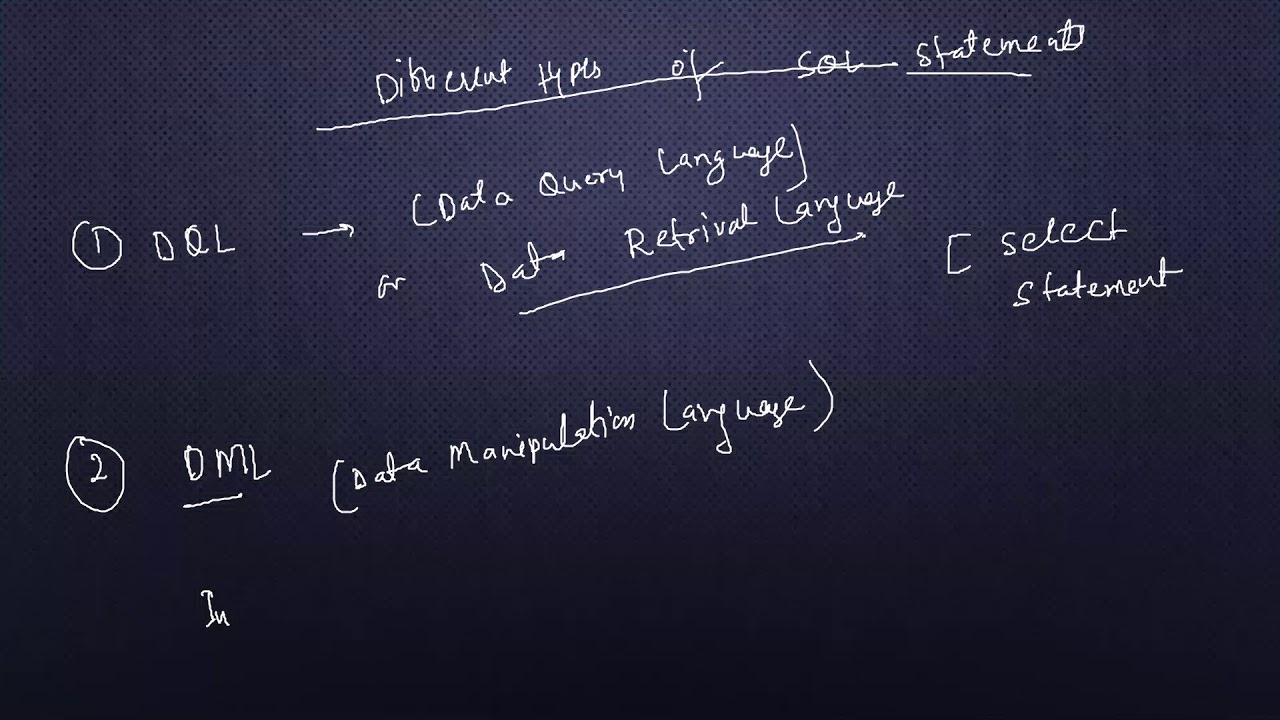 Different types of SQL statements
① DQL → (Data Query Language)
or Data Retrival Language [ select
statement
② DML (Data Manipulation Language)
In